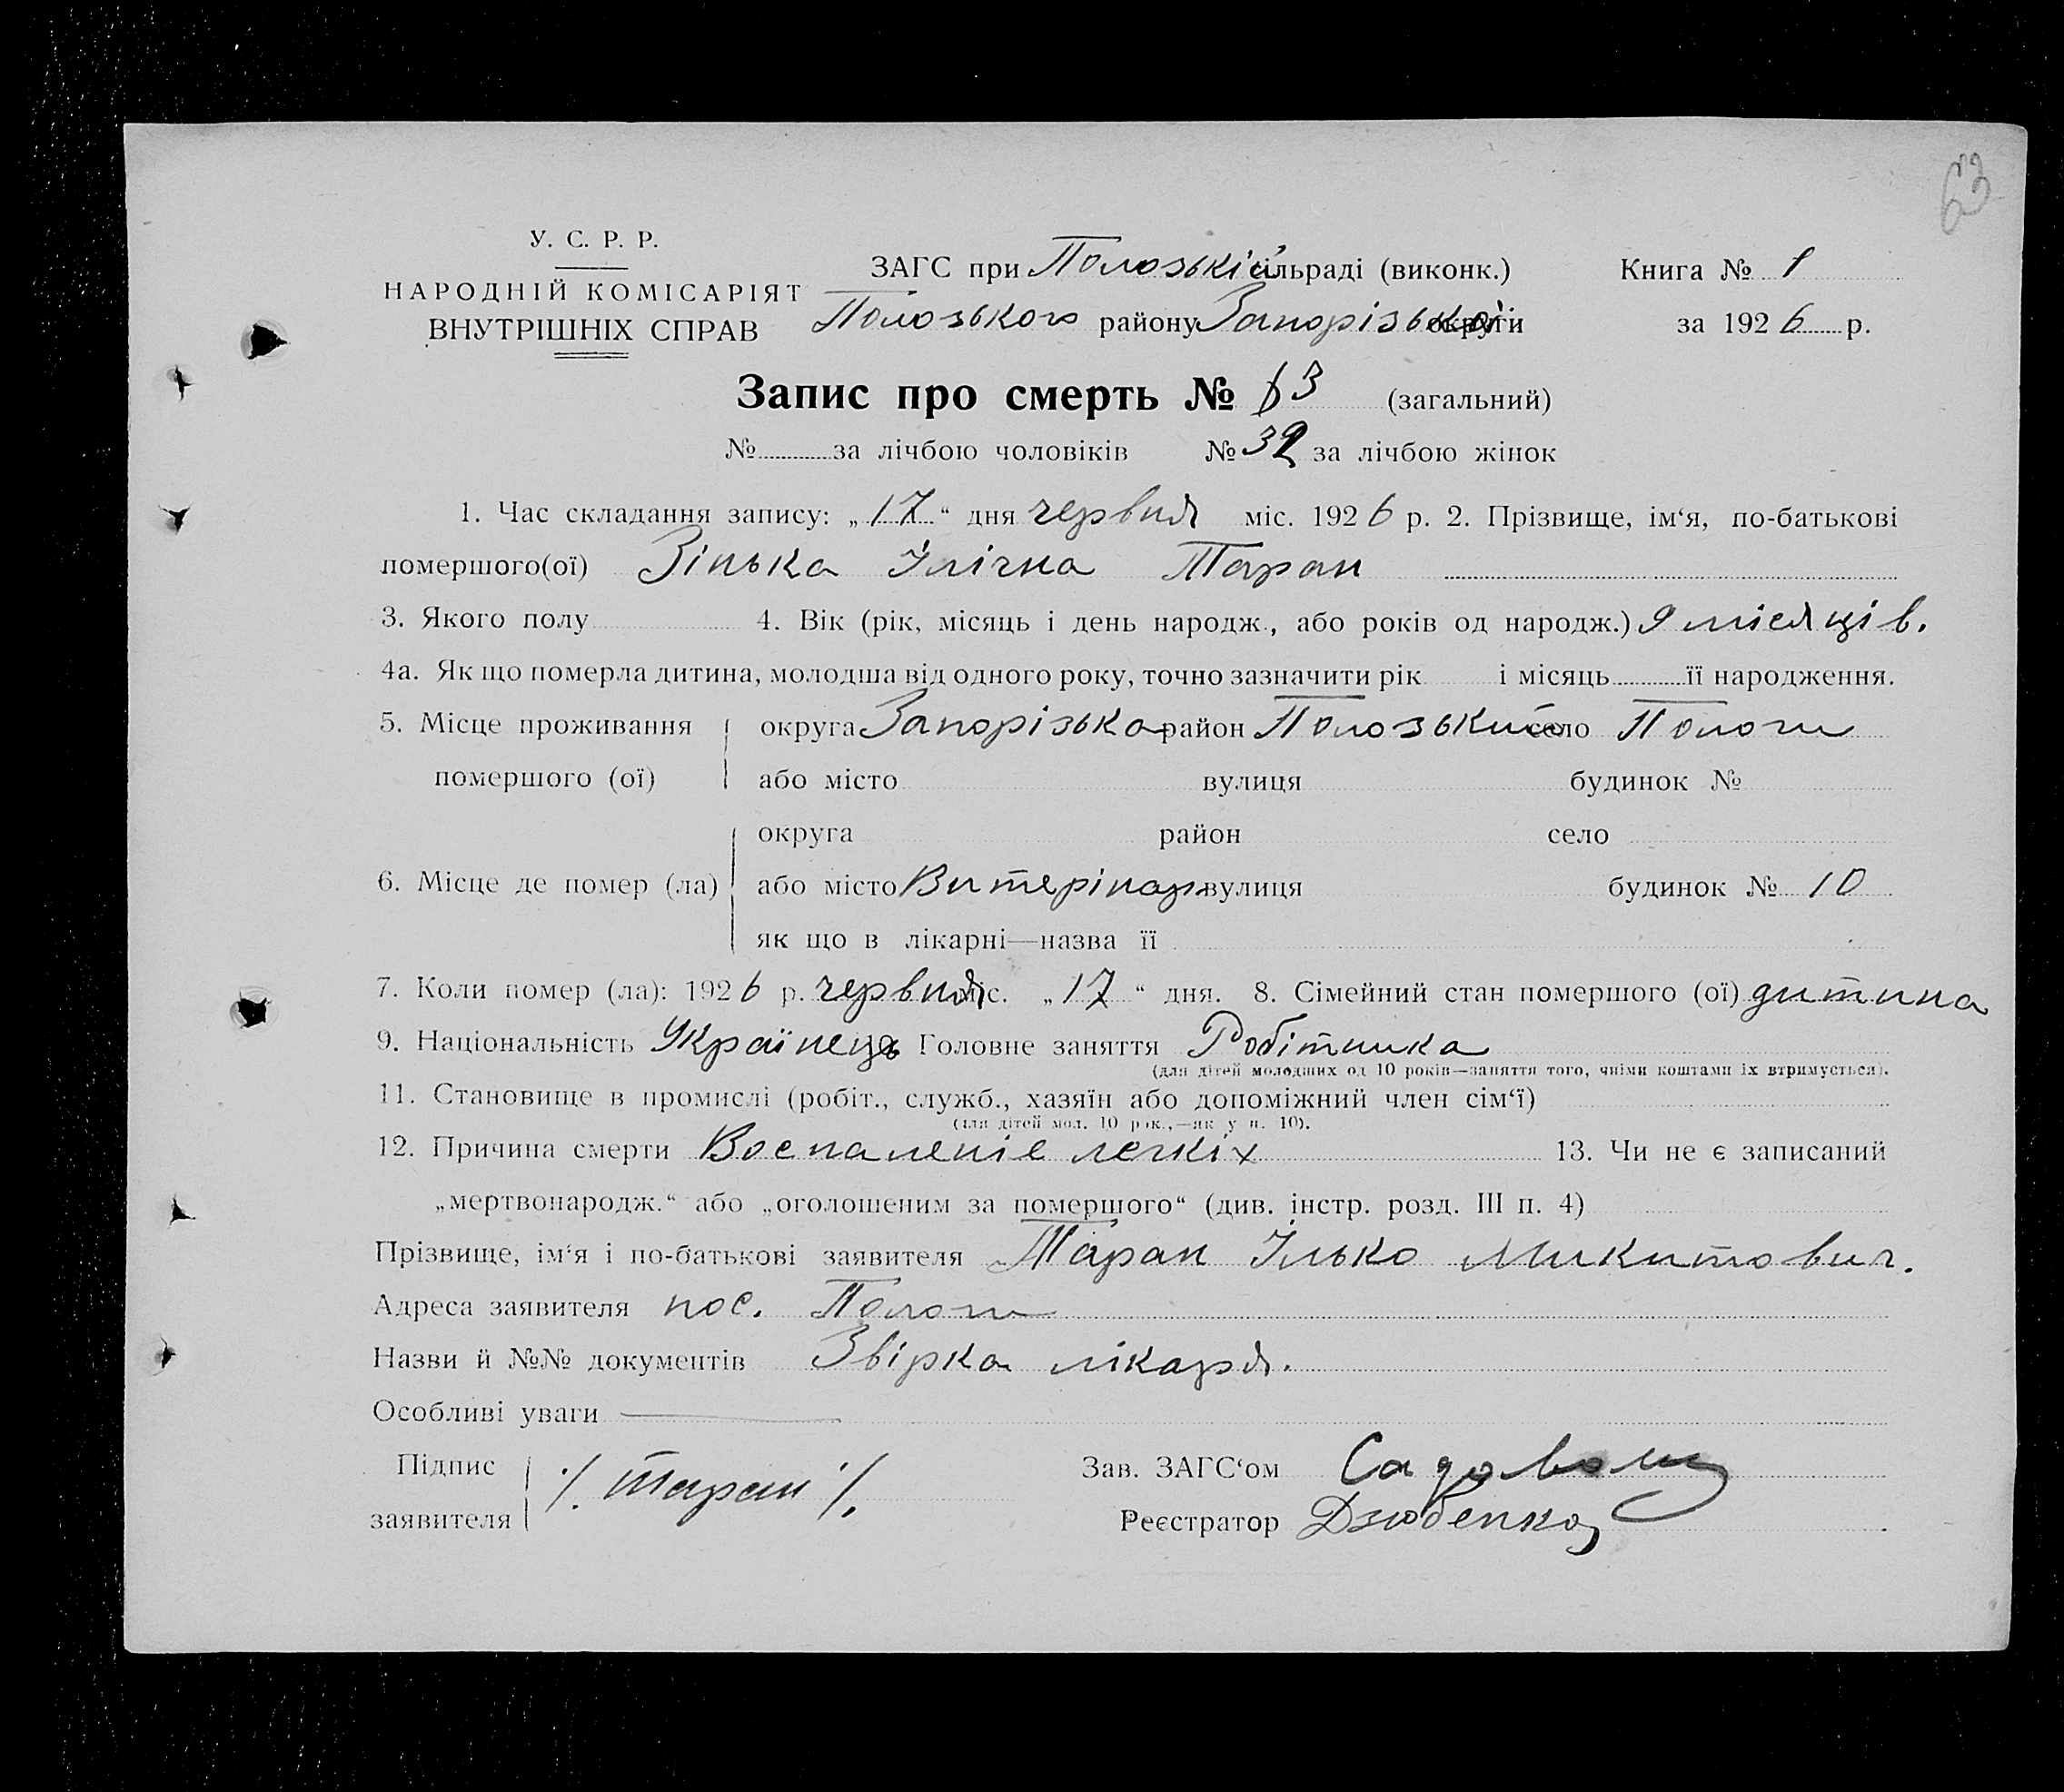 63
У. С. Р. Р.
НАРОДНІЙ КОМІСАРІЯТ
ВНУТРІШНІХ СПРАВ
ЗАГС при Полозькій сільраді (виконк.)
Полозького району Запорізької округи
Книга № 1
за 1926 р.
Запис про смерть № 63 (загальний)
№ за лічбою чоловіків № 32 за лічбою жінок
1. Час складання запису: „17“ дня червня міс. 1926 р. 2. Прізвище, ім‘я, по-батькові
помершого(ої) Зінька Ілічна Таран
3. Якого полу 4. Вік (рік, місяць і день народж., або років од народж.) 9 місяців.
4а. Як що померла дитина, молодша від одного року, точно зазначити рік і місяць її народження.
5. Місце проживання помершого (ої) округа Запорізька район Полозький село Пологи
або місто вулиця будинок №
6. Місце де помер (ла) округа район село
або місто Витерінар вулиця будинок № 10
як що в лікарні—назва її
7. Коли помер (ла): 1926 р. червня міс. „17“ дня. 8. Сімейний стан помершого (ої) дитина
9. Національність Українець Головне заняття Робітника
(для дітей молодших од 10 років—заняття того, чиїми коштами їх втримується).
11. Становище в промислі (робіт., служб., хазяїн або допоміжний член сім‘ї)
(для дітей мол. 10 рок.,—як у п. 10).
12. Причина смерти Воспаленіе легкіх 13. Чи не є записаний
„мертвонародж.“ або „оголошеним за помершого“ (див. інстр. розд. III п. 4)
Прізвище, ім‘я і по-батькові заявителя Таран Ілько Микитович.
Адреса заявителя пос. Пологи
Назви й №№ документів Звірка лікаря.
Особливі уваги
Підпис заявителя /. Таран /.
Зав. ЗАГС‘ом
Реєстратор Дзюбенко